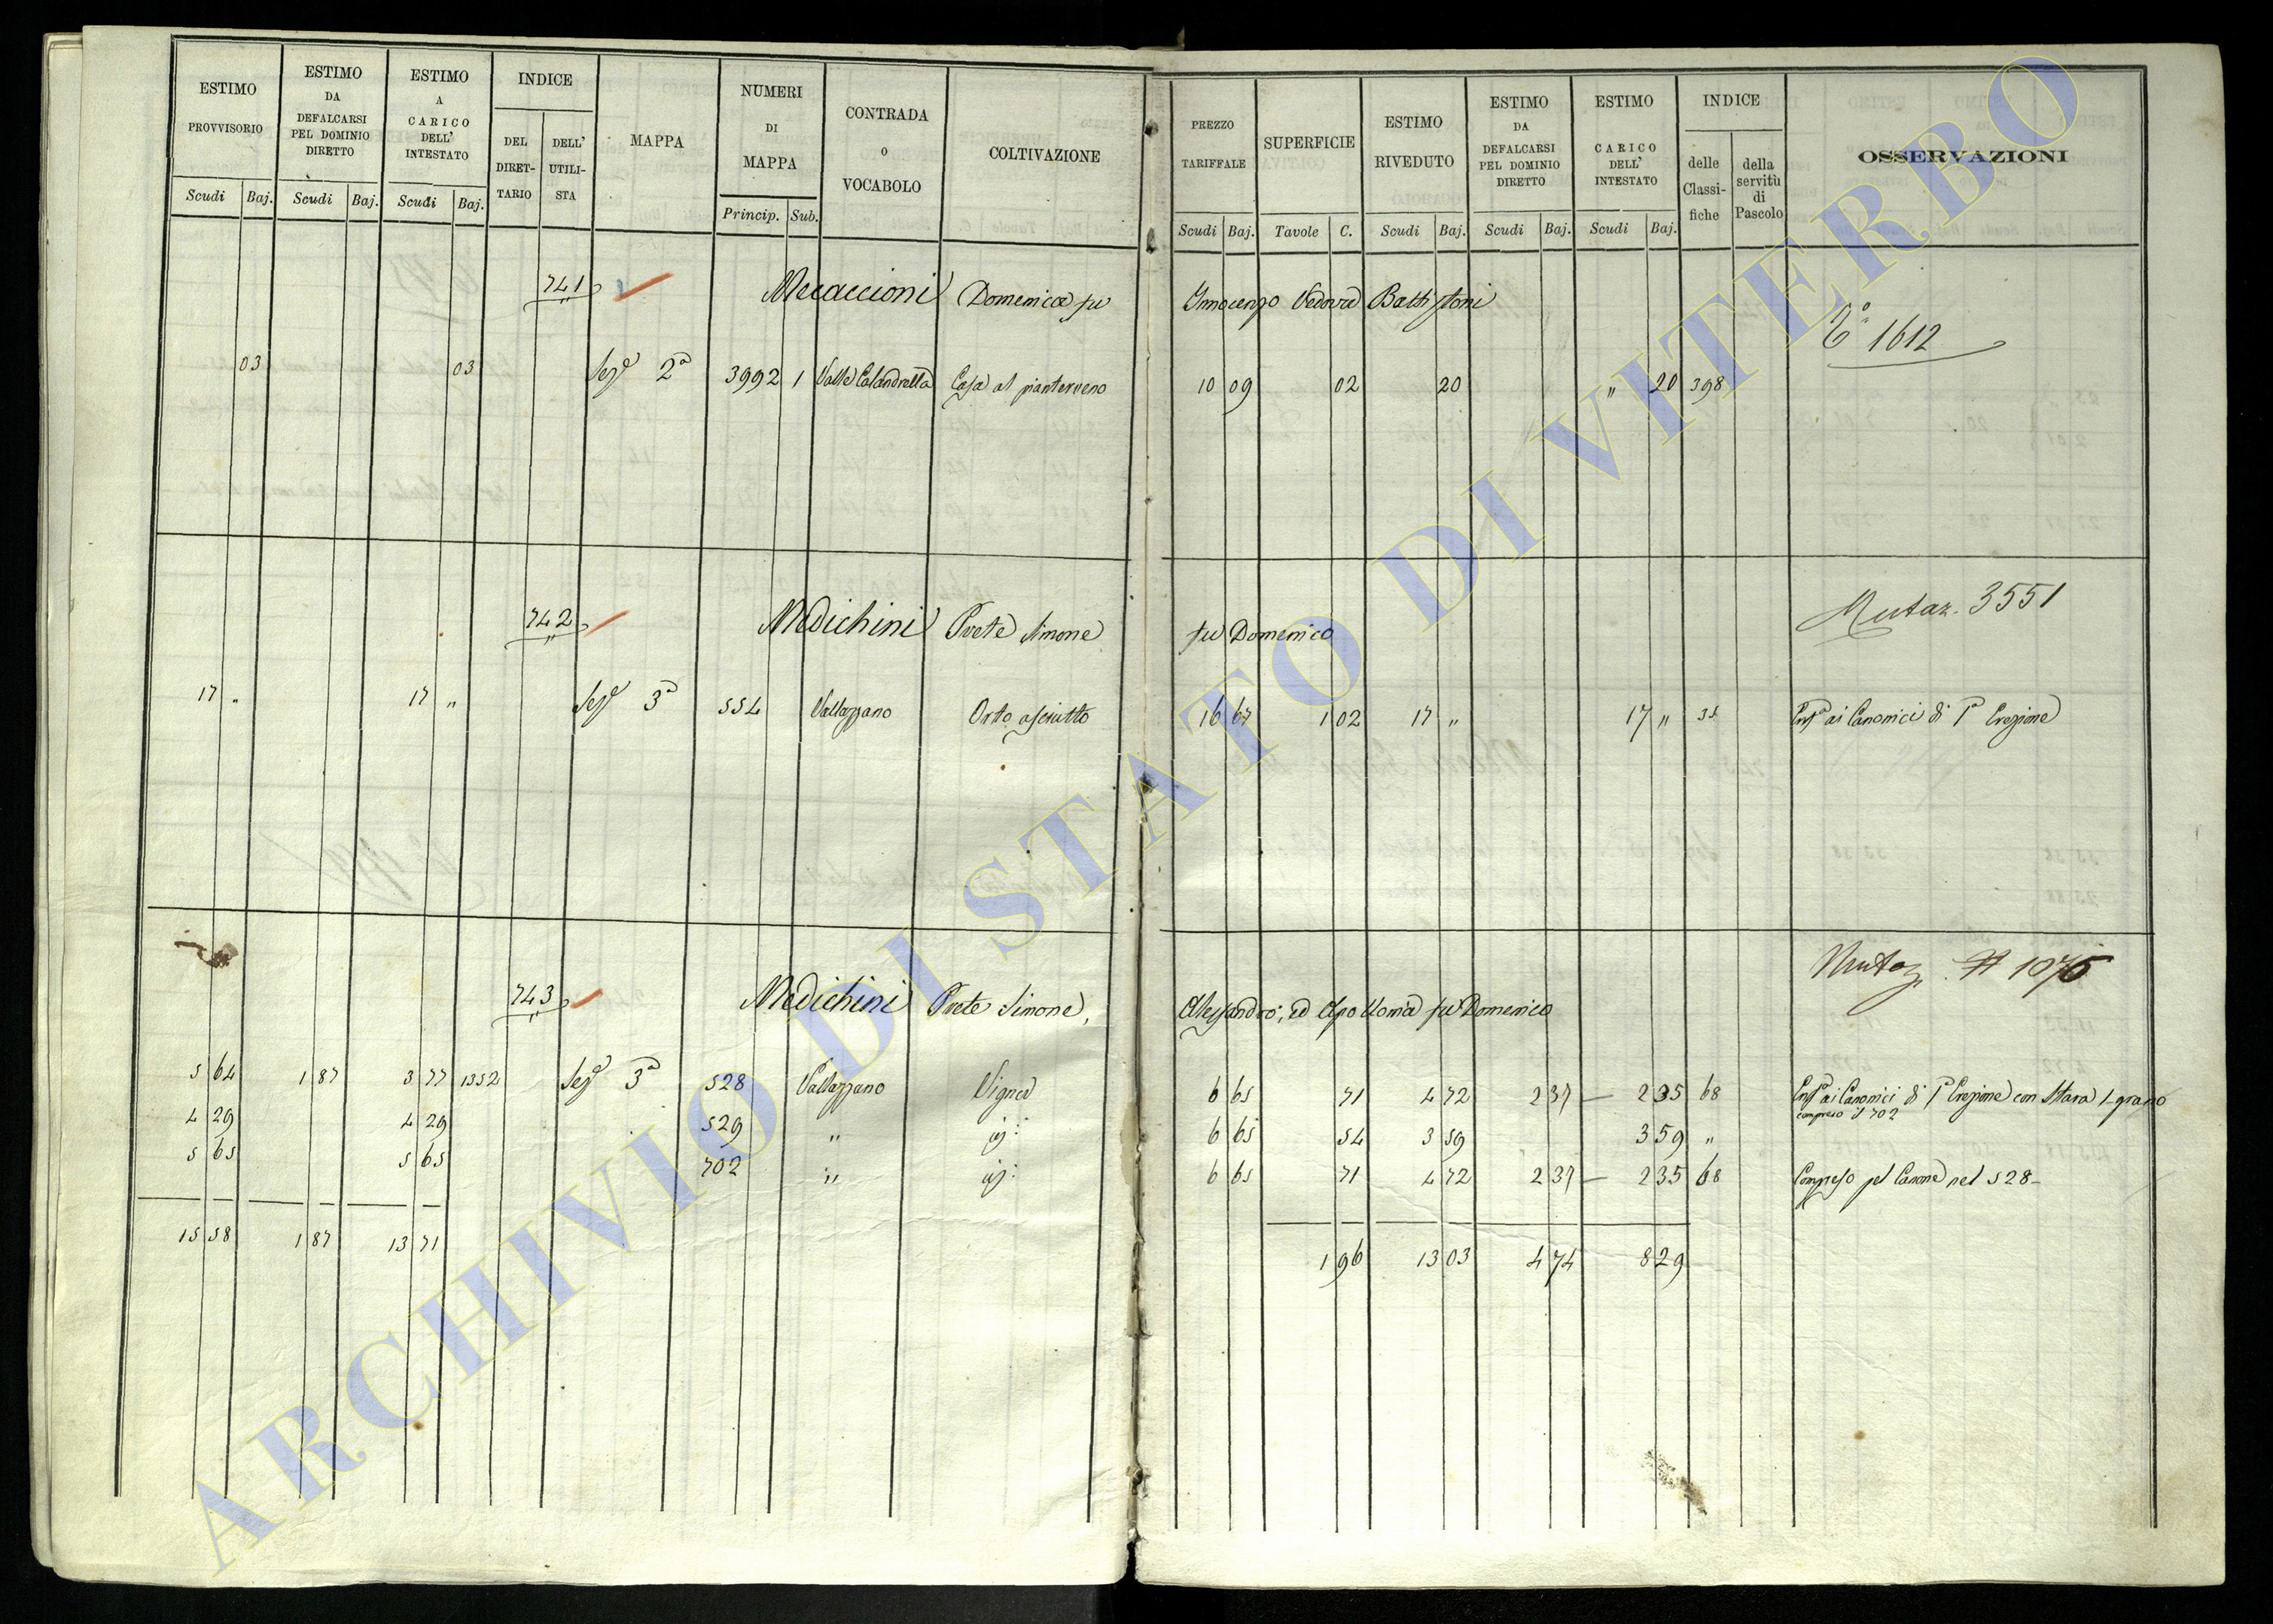 ESTIMO PROVVISORIO Scudi Baj.
ESTIMO DA DEFALCARSI PEL DOMINIO DIRETTO Scudi Baj.
ESTIMO A CARICO DELL' INTESTATO Scudi Baj.
INDICE DEL DIRET-TARIO DELL' UTILI-STA
MAPPA
NUMERI DI MAPPA Princip. Sub.
CONTRADA O VOCABOLO
COLTIVAZIONE
PREZZO TARIFFALE Scudi Baj.
SUPERFICIE Tavole C.
ESTIMO RIVEDUTO Scudi Baj.
ESTIMO DA DEFALCARSI PEL DOMINIO DIRETTO Scudi Baj.
ESTIMO CARICO DELL' INTESTATO Scudi Baj.
INDICE delle Classi-fiche della servitù di Pascolo
OSSERVAZIONI
741 Mecaccioni Domenica fu Innocenzo Vedova Battistoni
1612
03 03 Seze 2a 3992 1 Valle Calandrella Casa al pianterreno 10 09 02 20 " 20 398
742 Medichini Prete Simone fu Domenico
Mutaz. 3551
17 " 17 " Seze 3a 554 Vallazzano Orto asciutto 16 67 1 02 17 " 17 " 35 ai Canonici di 1a Erezione
743 Medichini Prete Simone, Alessandro, ed Apollonia fu Domenico
Mutaz. # 1075
5 64 1 87 3 77 1352 Seze 3a 528 Vallazzano Vigna 6 65 71 4 72 2 37 — 2 35 68 ai Canonici di 1a Erezione con Stara 1 grano
compreso il 702
4 29 4 29 529 " id: 6 65 54 3 59 3 59 "
5 65 5 65 702 " id: 6 65 71 4 72 2 37 — 2 35 68 Compreso pel Canone nel 528 -
15 58 1 87 13 71 1 96 13 03 4 74 8 29
ARCHIVIO DI STATO DI VITERBO